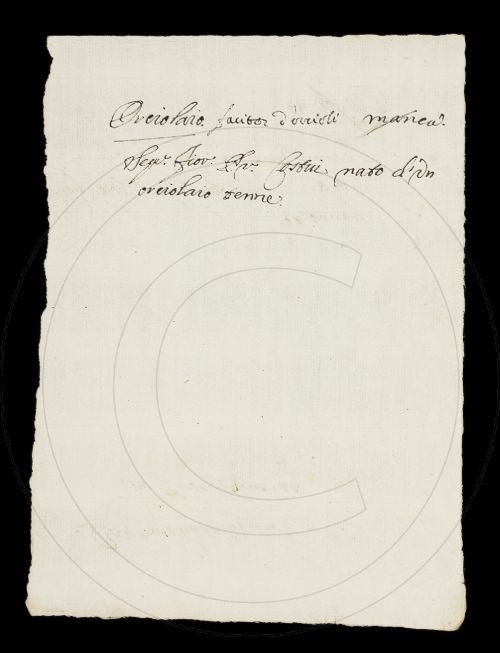 Orciolaio facitor d'orcioli manca.
Segr. Fior. Pr. Costui nato d'un
orciolaio venne.